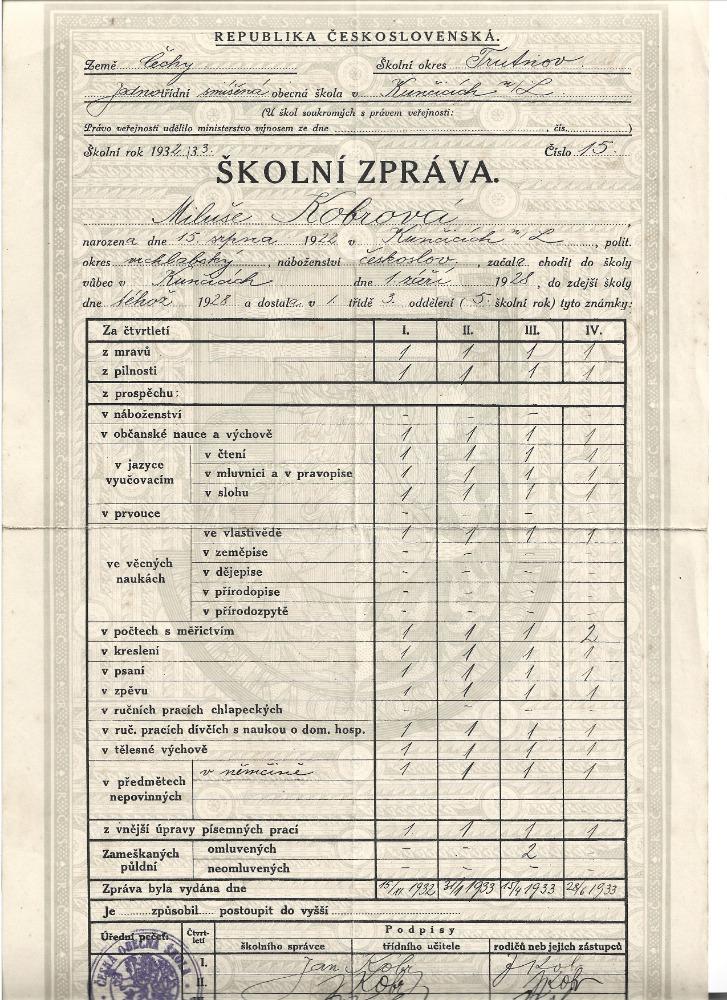 REPUBLIKA ČESKOSLOVENSKÁ.
Země Čechy Školní okres Trutnov.
jednotřídní smíšená obecná škola v Kunčicích n/L
(U škol soukromých s právem veřejnosti:
Právo veřejnosti udělilo ministerstvo výnosem ze dne , čís. )
Školní rok 1932/33. Číslo 15.
ŠKOLNÍ ZPRÁVA.
Miluše Kobrová,
narozena dne 15. srpna 1922 v Kunčicích n/L, polit.
okres vrchlabský, náboženství českoslov., začala choditi do školy
vůbec v Kunčicích dne 1 září 1928, do zdejší školy
dne téhož 1928 a dostala v 1. třídě 3. oddělení (5. školní rok) tyto známky:
Za čtvrtletí I. II. III. IV.
z mravů 1 1 1 1
z pilnosti 1 1 1 1
z prospěchu:
v náboženství - - - -
v občanské nauce a výchově 1 1 1 1
v jazyce vyučovacím
v čtení 1 1 1 1
v mluvnici a v pravopise 1 1 1 1
v slohu 1 1 1 1
v prvouce - - - -
ve věcných naukách
ve vlastivědě 1 1 1 1
v zeměpise - - - -
v dějepise - - - -
v přírodopise - - - -
v přírodozpytě - - - -
v počtech s měřictvím 1 1 1 2
v kreslení 1 1 1 1
v psaní 1 1 1 1
v zpěvu 1 1 1 1
v ručních pracích chlapeckých - - - -
v ruč. pracích dívčích s naukou o dom. hosp. 1 1 1 1
v tělesné výchově 1 1 1 1
v předmětech nepovinných
v němčině 1 1 1 1
z vnější úpravy písemných prací 1 1 1 1
Zameškaných půldní
omluvených - - 2 -
neomluvených - - - -
Zpráva byla vydána dne 15/XI 1932 31/1 1933 15/4 1933 28/6 1933
Je způsobil postoupit do vyšší
Úřední pečeť Čtvrtletí Podpisy
školního správce třídního učitele rodičů neb jejich zástupců
I. Jan Kobr J Kobr
II. Kobr JKobr
ČESKÁ OBECNÁ ŠKOLA